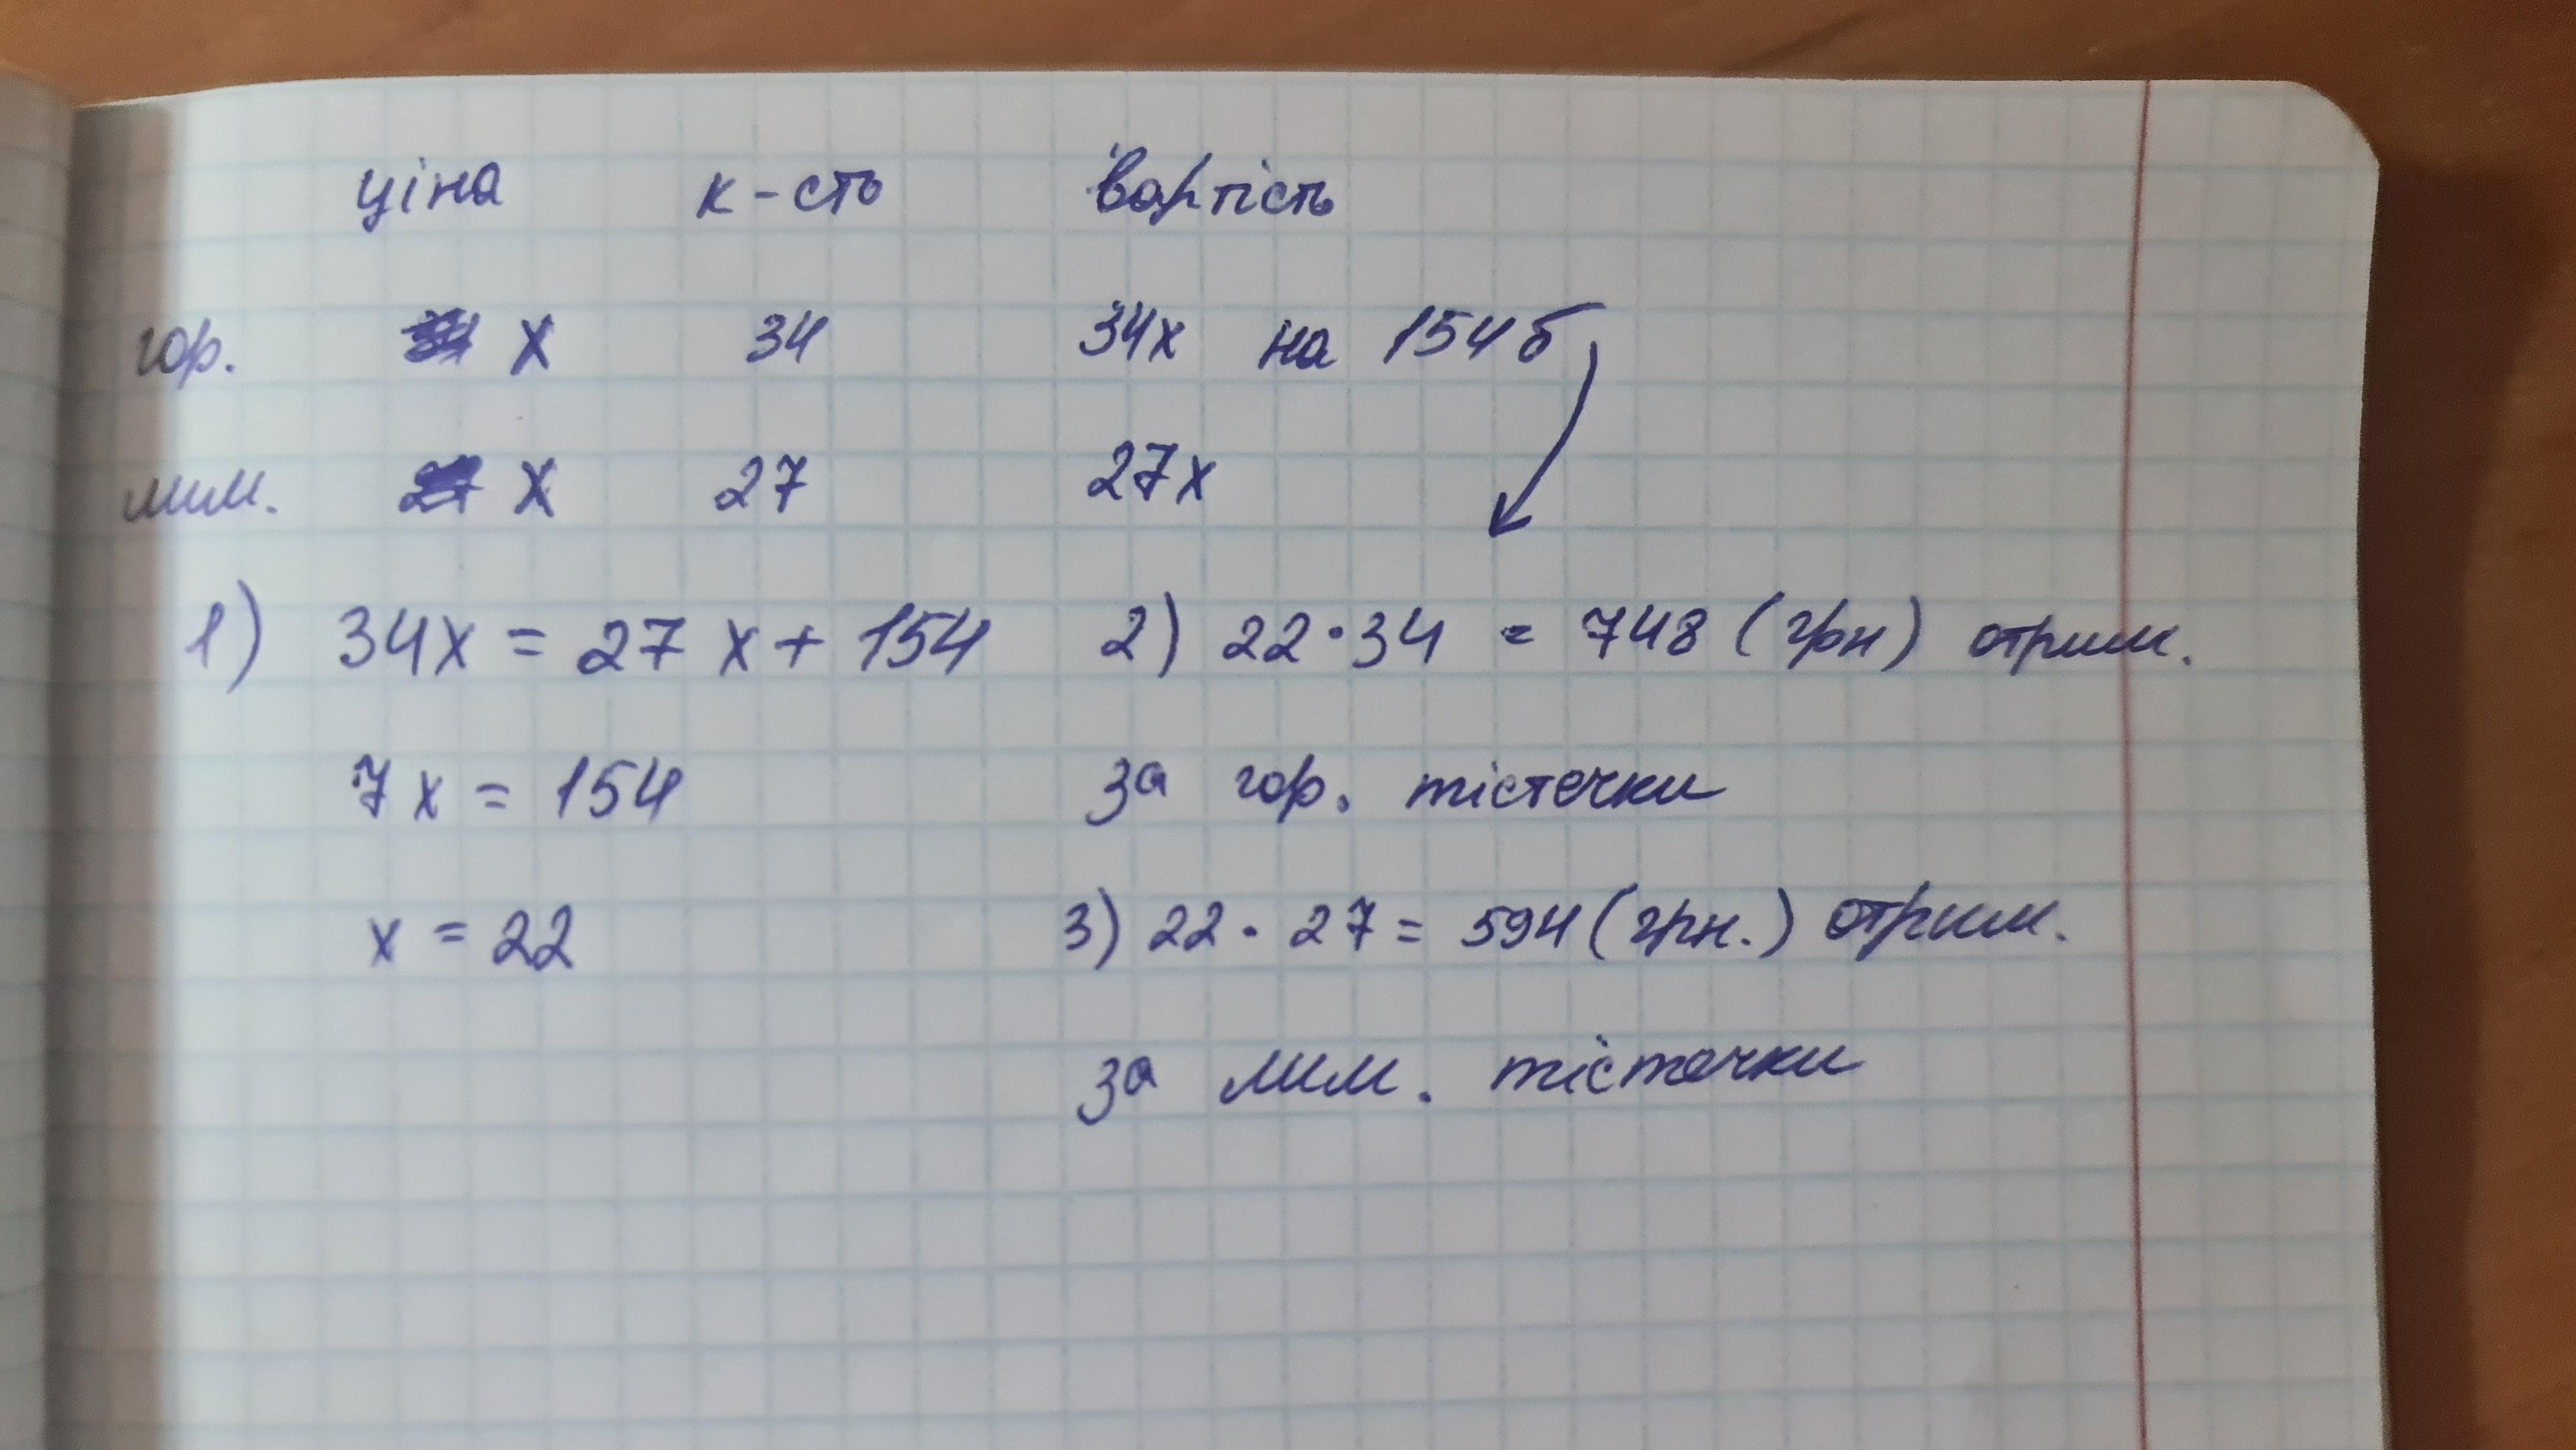 ціна к-сть вартість
гор. х 34 34х на 154 б
лим. х 27 27х
1) 34х = 27х + 154
7х = 154
х = 22
2) 22 · 34 = 748 (грн) отрим.
за гор. тістечки
3) 22 · 27 = 594 (грн.) отрим.
за лим. тістечки